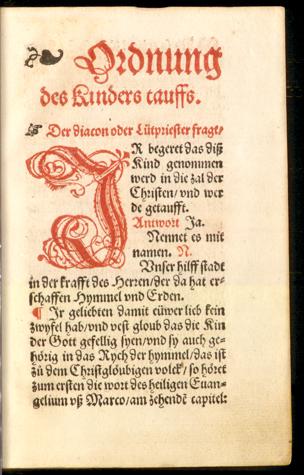 Ordnung
des Kinders tauffs.
☞ Der diacon oder Lütpriester fragt/
IR begeret das diß
Kind genommen
werd in die zal der
Christen/ vnd wer
de getaufft.
Antwort Ja.
Nennet es mit
namen. N.
Vnser hilff stadt
in der krafft des Herren/ der da hat er-
schaffen Hymmel vnd Erden.
¶ Ir geliebten damit eüwer lieb kein
zwyfel hab/ vnd vest gloub das die Kin
der Gott gefellig syen/ vnd sy auch ge-
hörig in das Rych der hymmel/ das ist
zů dem Christglöubigen volck/ so höret
zum ersten die wort des heiligen Euan-
gelium vß Marco/ am zehendē capitel: